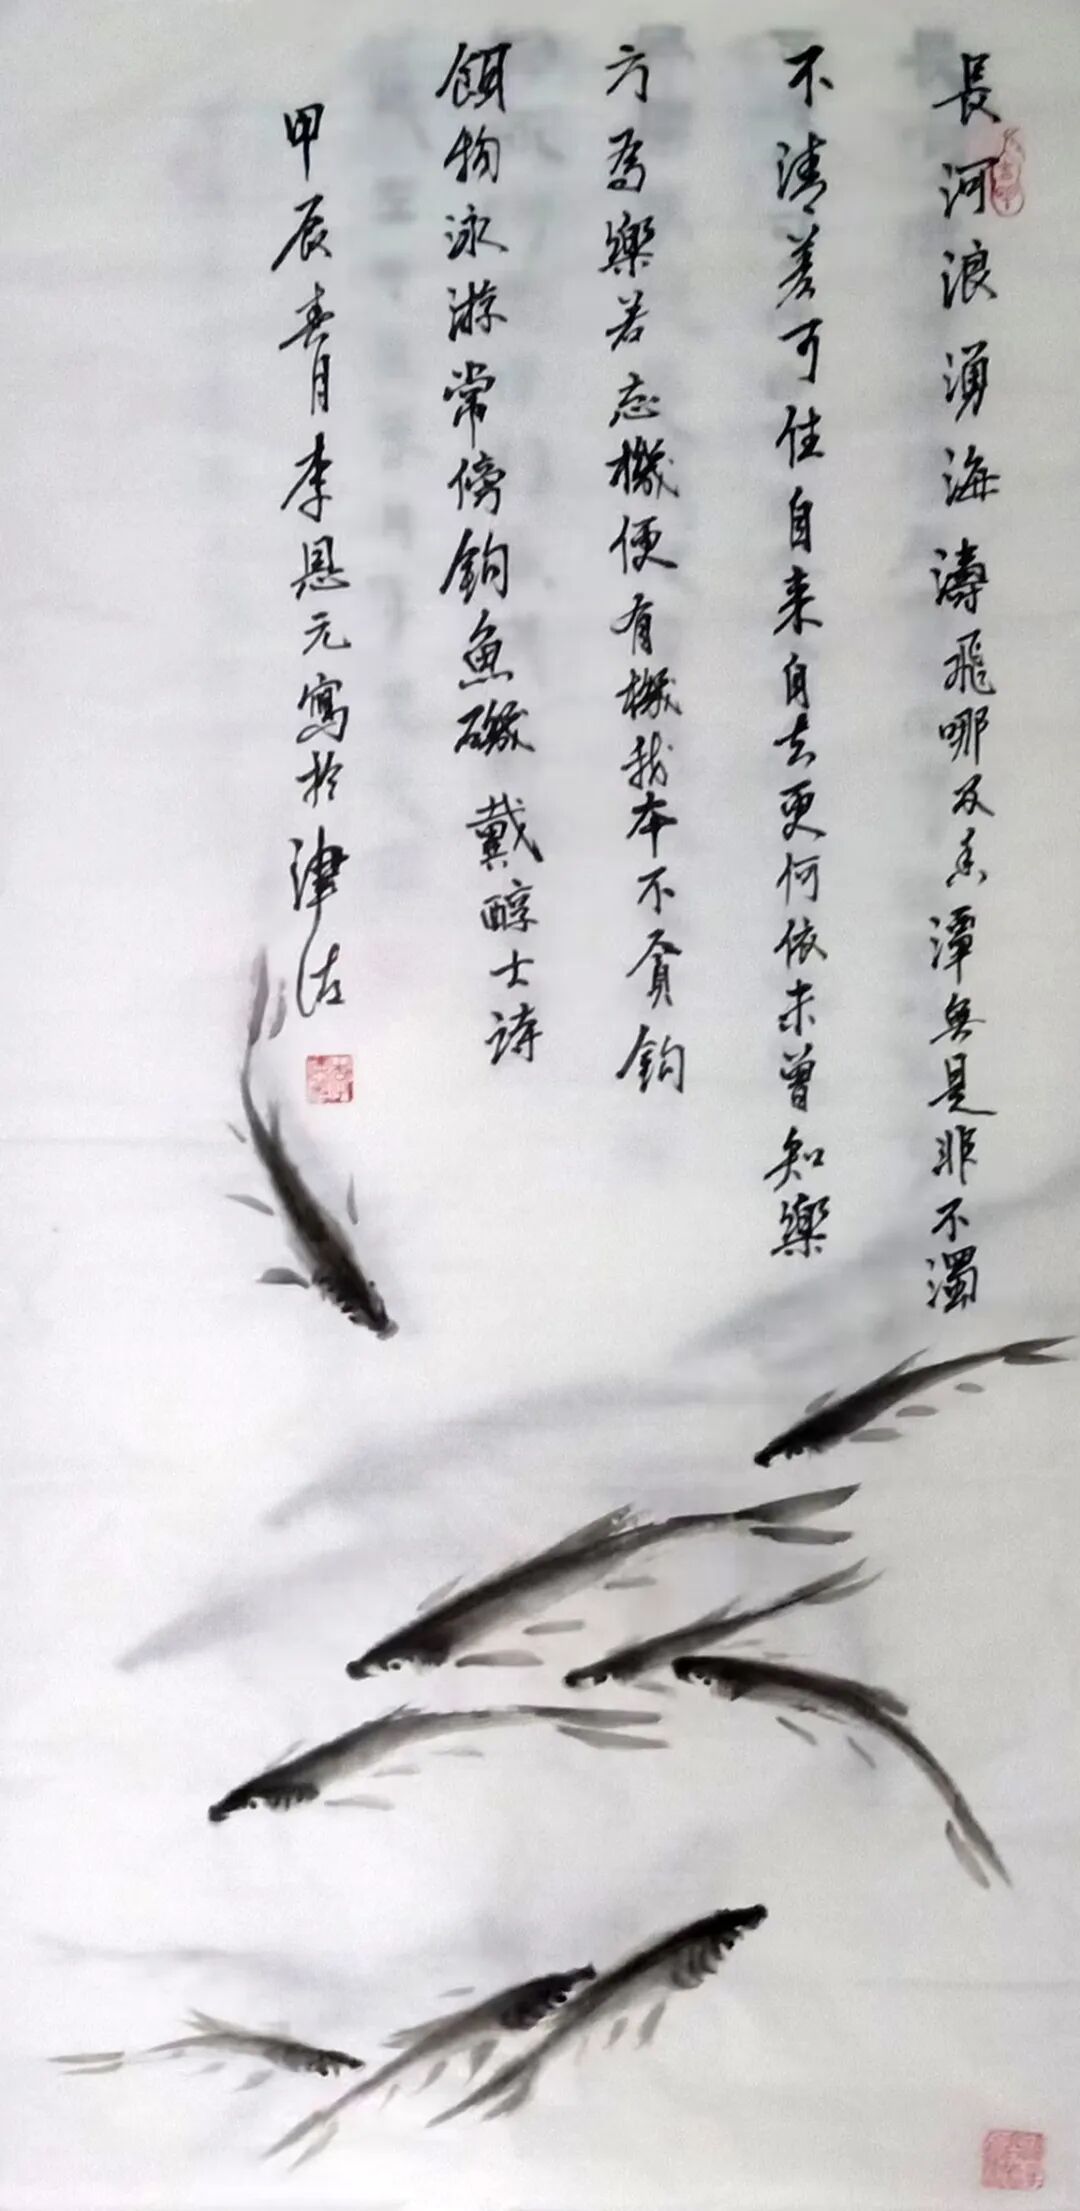 長河浪湧海濤飛哪及香潭無是非不濁
不清差可住自來自去更何依未曾知樂
方為樂若忘機便有機我本不貪鈎
餌物泳游常傍鈎魚磯 戴醇士詩
甲辰春月李恩元寫於津沽